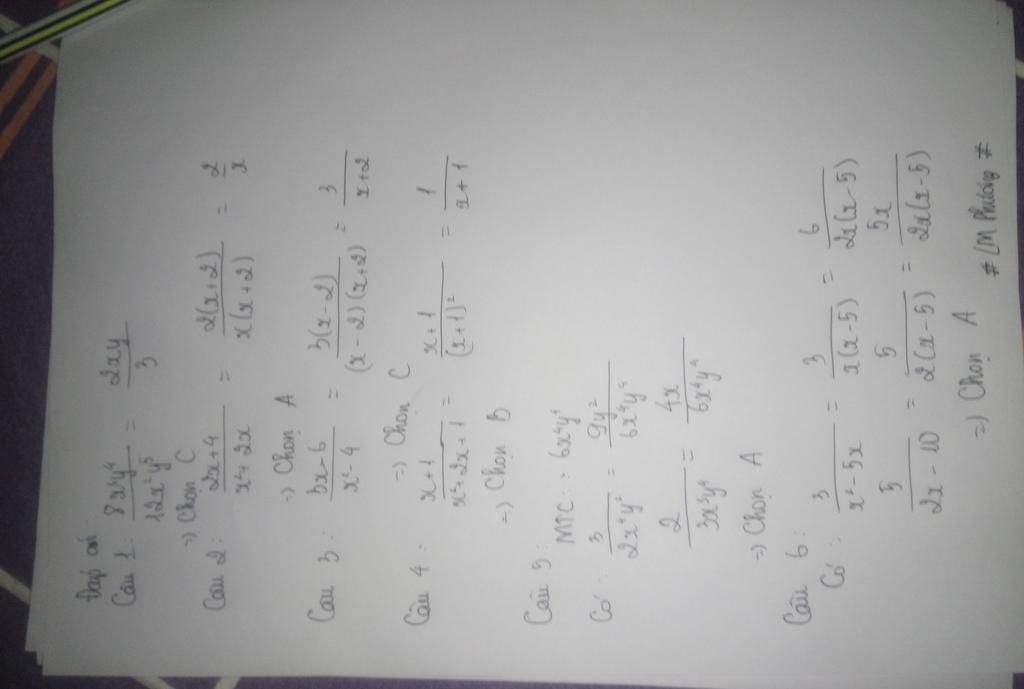 Đáp án
Câu 1: 8x³y⁴/12x²y⁵ = 2xy/3
=) Chọn C
Câu 2: 2x+4/x²+2x = 2(x+2)/x(x+2) = 2/x
=) Chọn A
Câu 3: 3x-6/x²-4 = 3(x-2)/(x-2)(x+2) = 3/x+2
=) Chọn C
Câu 4: x+1/x²+2x+1 = x+1/(x+1)² = 1/x+1
=) Chọn B
Câu 5: MTC: 6x⁴y⁴
Có: 3/2x⁴y² = 9y²/6x⁴y⁴
2/3x³y⁴ = 4x/6x⁴y⁴
=) Chọn A
Câu 6:
Có: 3/x²-5x = 3/x(x-5) = 6/2x(x-5)
5/2x-10 = 5/2(x-5) = 5x/2x(x-5)
=) Chọn A